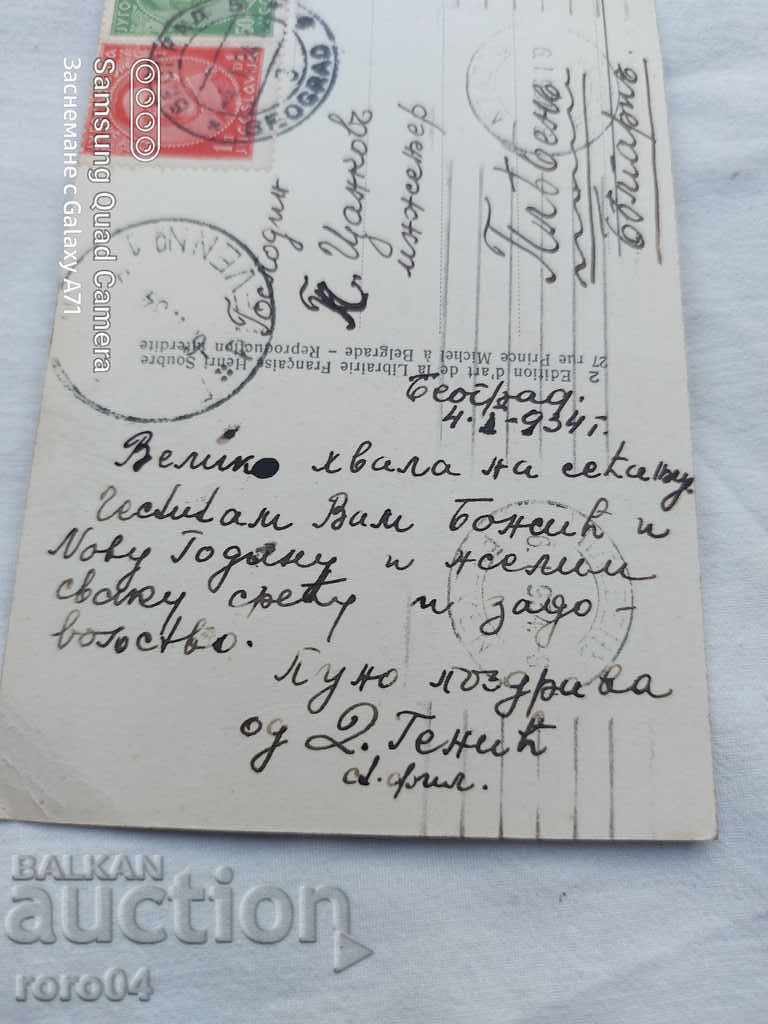 Београд.
4.I-934 г.
Велико хвала на сећању.
Честитам Вам Божић и
Нову Годину и желим
сваку срећу и задо-
вољство.
Пуно поздрава
од Д. Генић
ст. фил.
Господин
К. Цанков
инжењер
Плѣвенъ
България
2 Edition d'art de la Librairie Française Henri Soubre
27 rue Prince Michel à Belgrade – Reproduction interdite
BEOGRAD
Samsung Quad Camera
Заснемане с Galaxy A71
BALKAN
auction
roro04